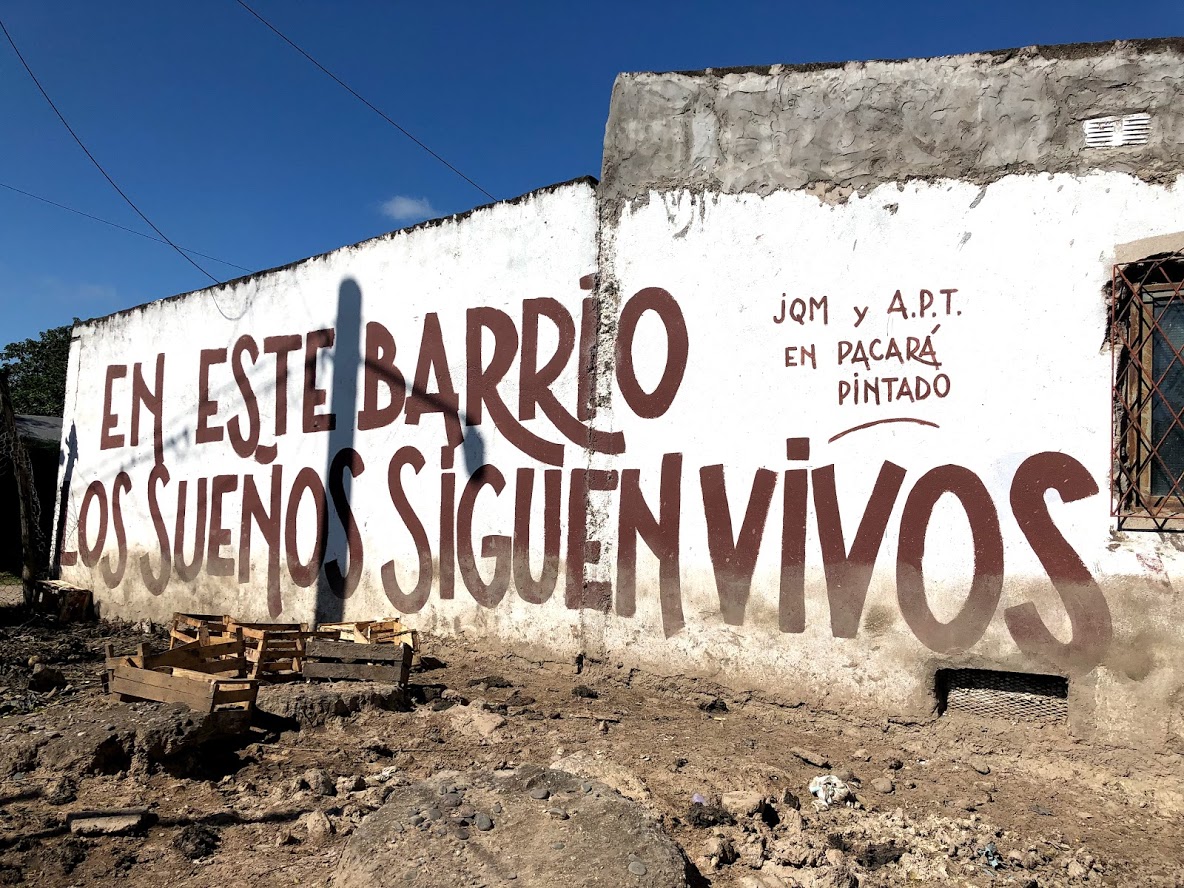 EN ESTE BARRIO
LOS SUEÑOS SIGUEN VIVOS
JQM y A.P.T.
EN PACARÁ
PINTADO